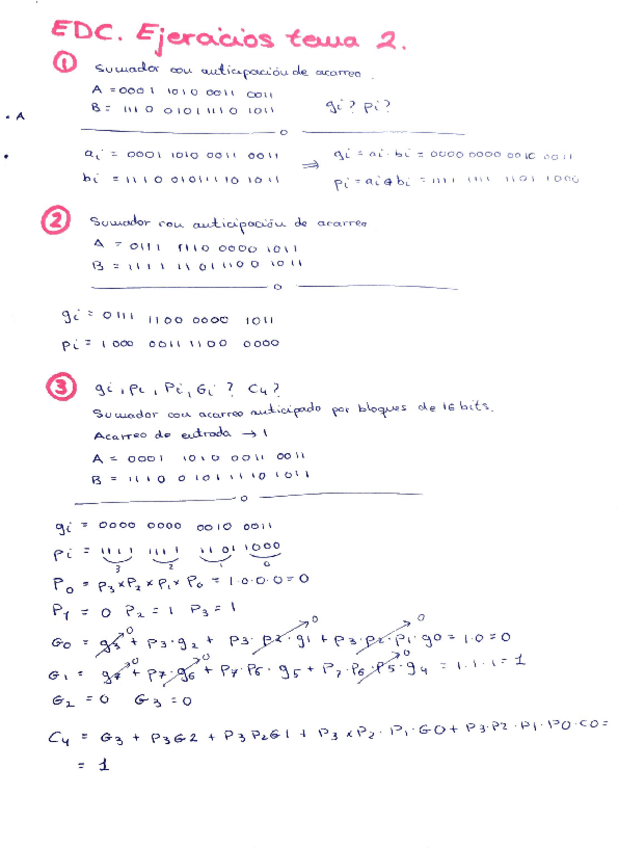 EDC. Ejercicios tema 2.
① Sumador con anticipación de acarreo.
A = 0001 1010 0011 0011
B = 1110 0101 1110 1011 gi? pi?
• A
ai = 0001 1010 0011 0011 ⇒ gi = ai · bi = 0000 0000 0010 0011
bi = 1110 0101 1110 1011 pi = ai ⊕ bi = 1111 1111 1101 1000
② Sumador con anticipación de acarreo
A = 0111 1110 0000 1011
B = 1111 1101 1100 1011
gi = 0111 1100 0000 1011
pi = 1000 0011 1100 0000
③ gi, pi, Pi, Gi? C4?
Sumador con acarreo anticipado por bloques de 16 bits.
Acarreo de entrada → 1
A = 0001 1010 0011 0011
B = 1110 0101 1110 1011
gi = 0000 0000 0010 0011
pi = 1111 1111 1101 1000
3 2 1 0
P0 = P3 x P2 x P1 x P0 = 1·0·0·0 = 0
P1 = 0 P2 = 1 P3 = 1
G0 = g3 + p3·g2 + p3·p2·g1 + p3·p2·p1·g0 = 1·0 = 0
G1 = g7 + p7·g6 + p7·p6·g5 + p7·p6·p5·g4 = 1·1·1 = 1
G2 = 0 G3 = 0
C4 = G3 + P3G2 + P3P2G1 + P3 x P2·P1·G0 + P3·P2·P1·P0·C0 =
= 1